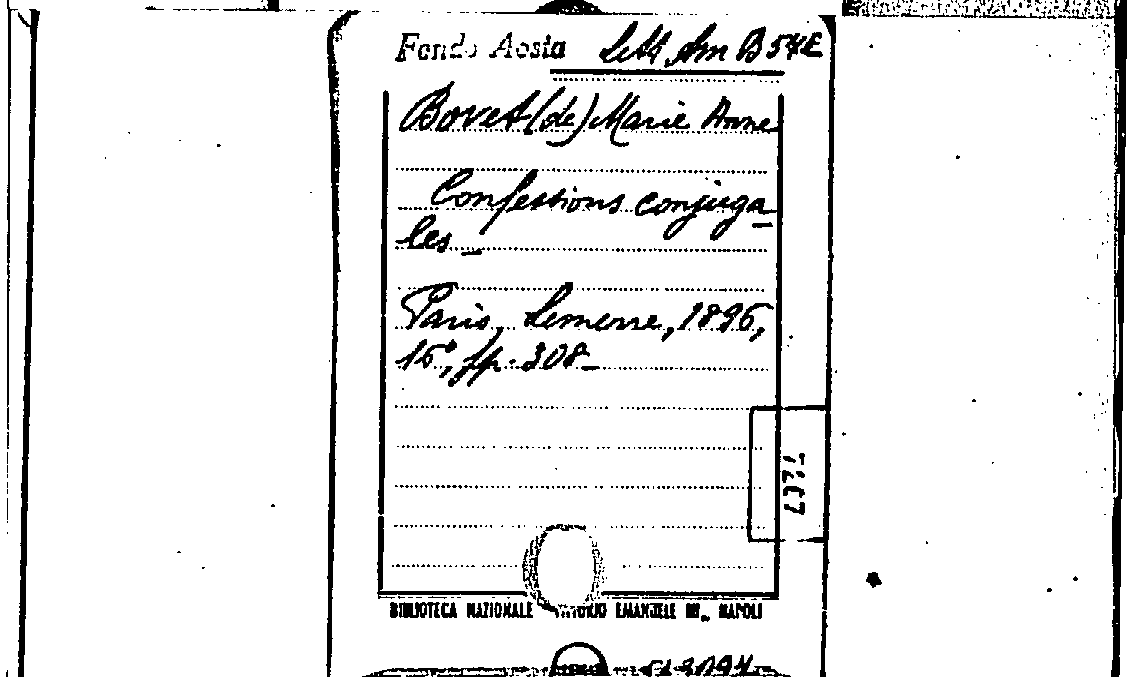 Fondo Aosta Lett Am B 54
Bovet (de) Marie Anne
Confessions conjuga-
les -
Paris, Lemerre, 1895,
16°, pp. 308 -
BIBLIOTECA NAZIONALE VITTORIO EMANUELE III - NAPOLI